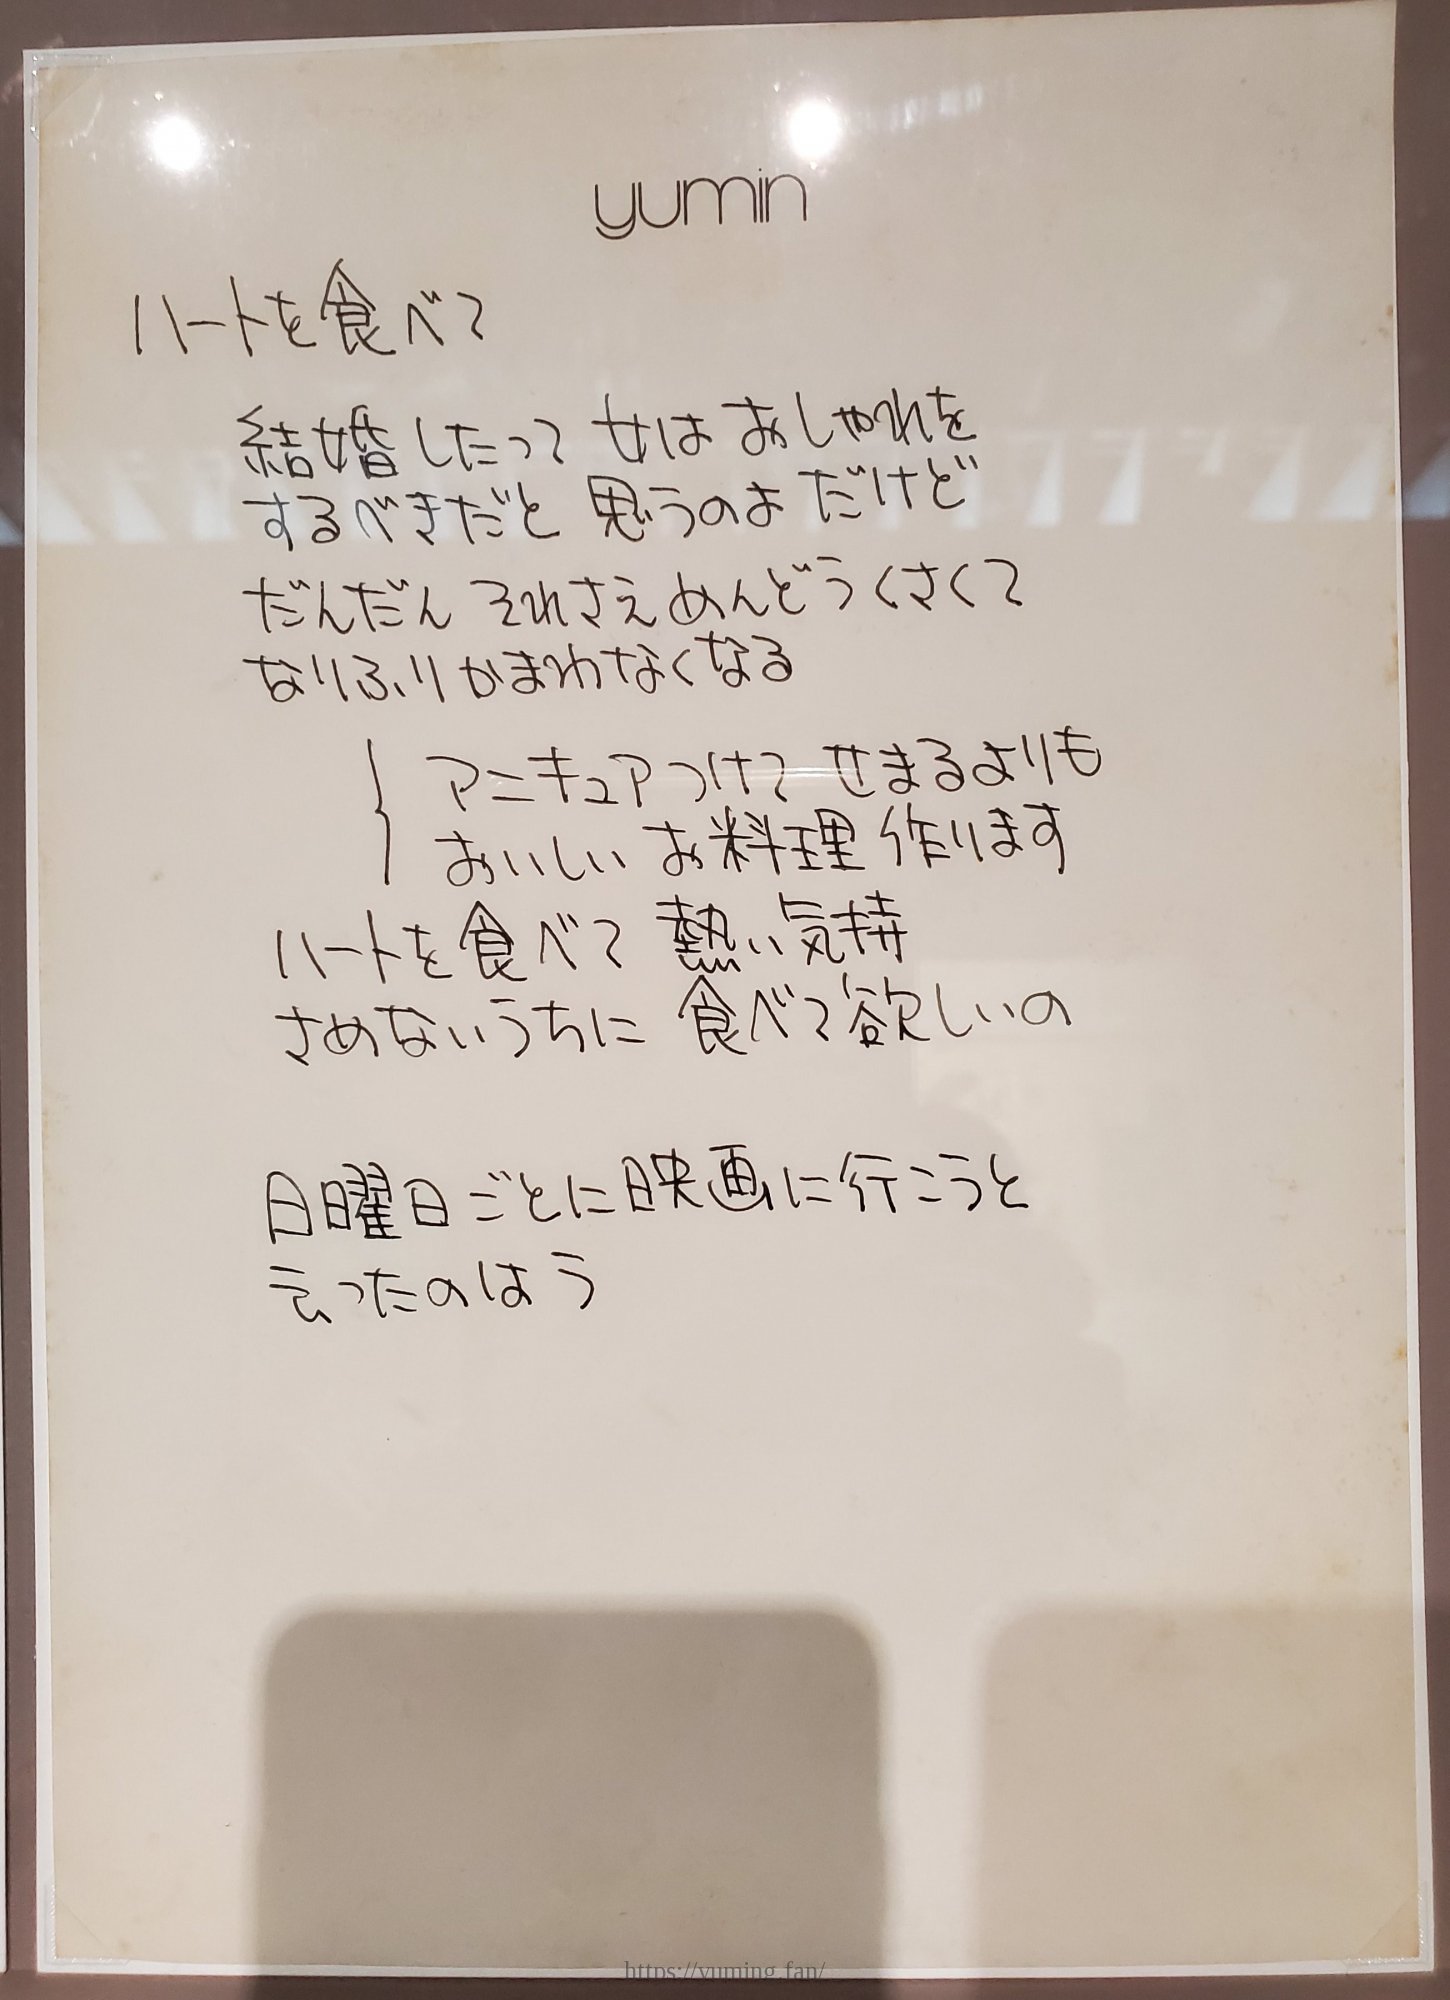 yumin
ハートを食べて
結婚したって 女は おしゃれを
するべきだと 思うのよ だけど
だんだん それさえ めんどうくさくて
なりふりかまわなくなる
マニキュアつけて せまるよりも
おいしい お料理 作ります
ハートを食べて 熱い気持
さめないうちに 食べて欲しいの
日曜日ごとに映画に行こうと
言ったのはう
https://yuming.fan/